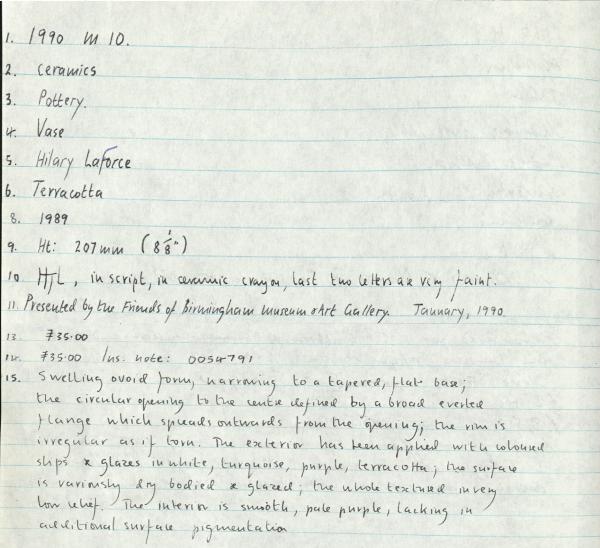 1. 1990 M 10.
2. Ceramics
3. Pottery.
4. Vase
5. Hilary Laforce
6. Terracotta
8. 1989
9. Ht: 207mm (8 1/8")
10 HJL, in script, in ceramic crayon, last two letters are very faint.
11. Presented by the Friends of Birmingham Museum & Art Gallery. January, 1990.
13. £35.00
14. £35.00 Ins. note: 0054791
15. Swelling ovoid form, narrowing to a tapered, flat base;
the circular opening to the centre defined by a broad everted
flange which spreads outwards from the opening; the rim is
irregular as if torn. The exterior has been applied with coloured
slips & glazes in white, turquoise, purple, terracotta; the surface
is variously dry bodied & glazed; the whole textured in very
low relief. The interior is smooth, pale purple, lacking in
additional surface pigmentation